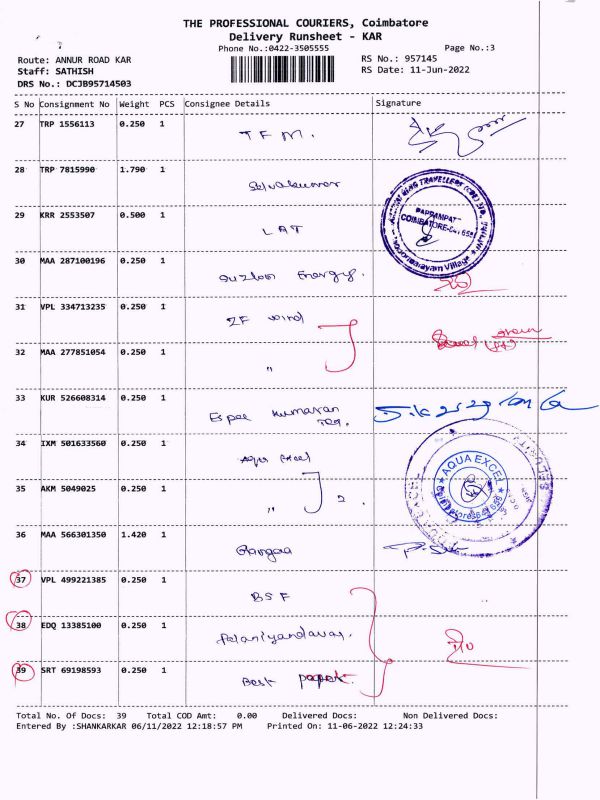 THE PROFESSIONAL COURIERS, Coimbatore
Delivery Runsheet - KAR
Phone No.:0422-3505555
Page No.:3
Route: ANNUR ROAD KAR
RS No.: 957145
Staff: SATHISH
RS Date: 11-Jun-2022
DRS No.: DCJB95714503
S No Consignment No Weight PCS Consignee Details Signature
27 TRP 1556113 0.250 1 T F M.
28 TRP 7815990 1.790 1 Selvakumar
29 KRR 2553507 0.500 1 LAT
PAPPAMPATTI
COIMBATORE
30 MAA 287100196 0.250 1 Suzlon Energy.
31 VPL 334713235 0.250 1 ZF wind
32 MAA 277851054 0.250 1 "
33 KUR 526608314 0.250 1 Espee Kumaran
34 IXM 501633560 0.250 1 Aqua Excel
AQUA EXCEL
SECURITY
35 AKM 5049025 0.250 1 " 2.
36 MAA 566301350 1.420 1 Rangaa
37 VPL 499221385 0.250 1 BSF
38 EDQ 13385100 0.250 1 Palaniyandavar.
39 SRT 69198593 0.250 1 Best paper.
Total No. Of Docs: 39 Total COD Amt: 0.00 Delivered Docs: Non Delivered Docs:
Entered By :SHANKARKAR 06/11/2022 12:18:57 PM Printed On: 11-06-2022 12:24:33